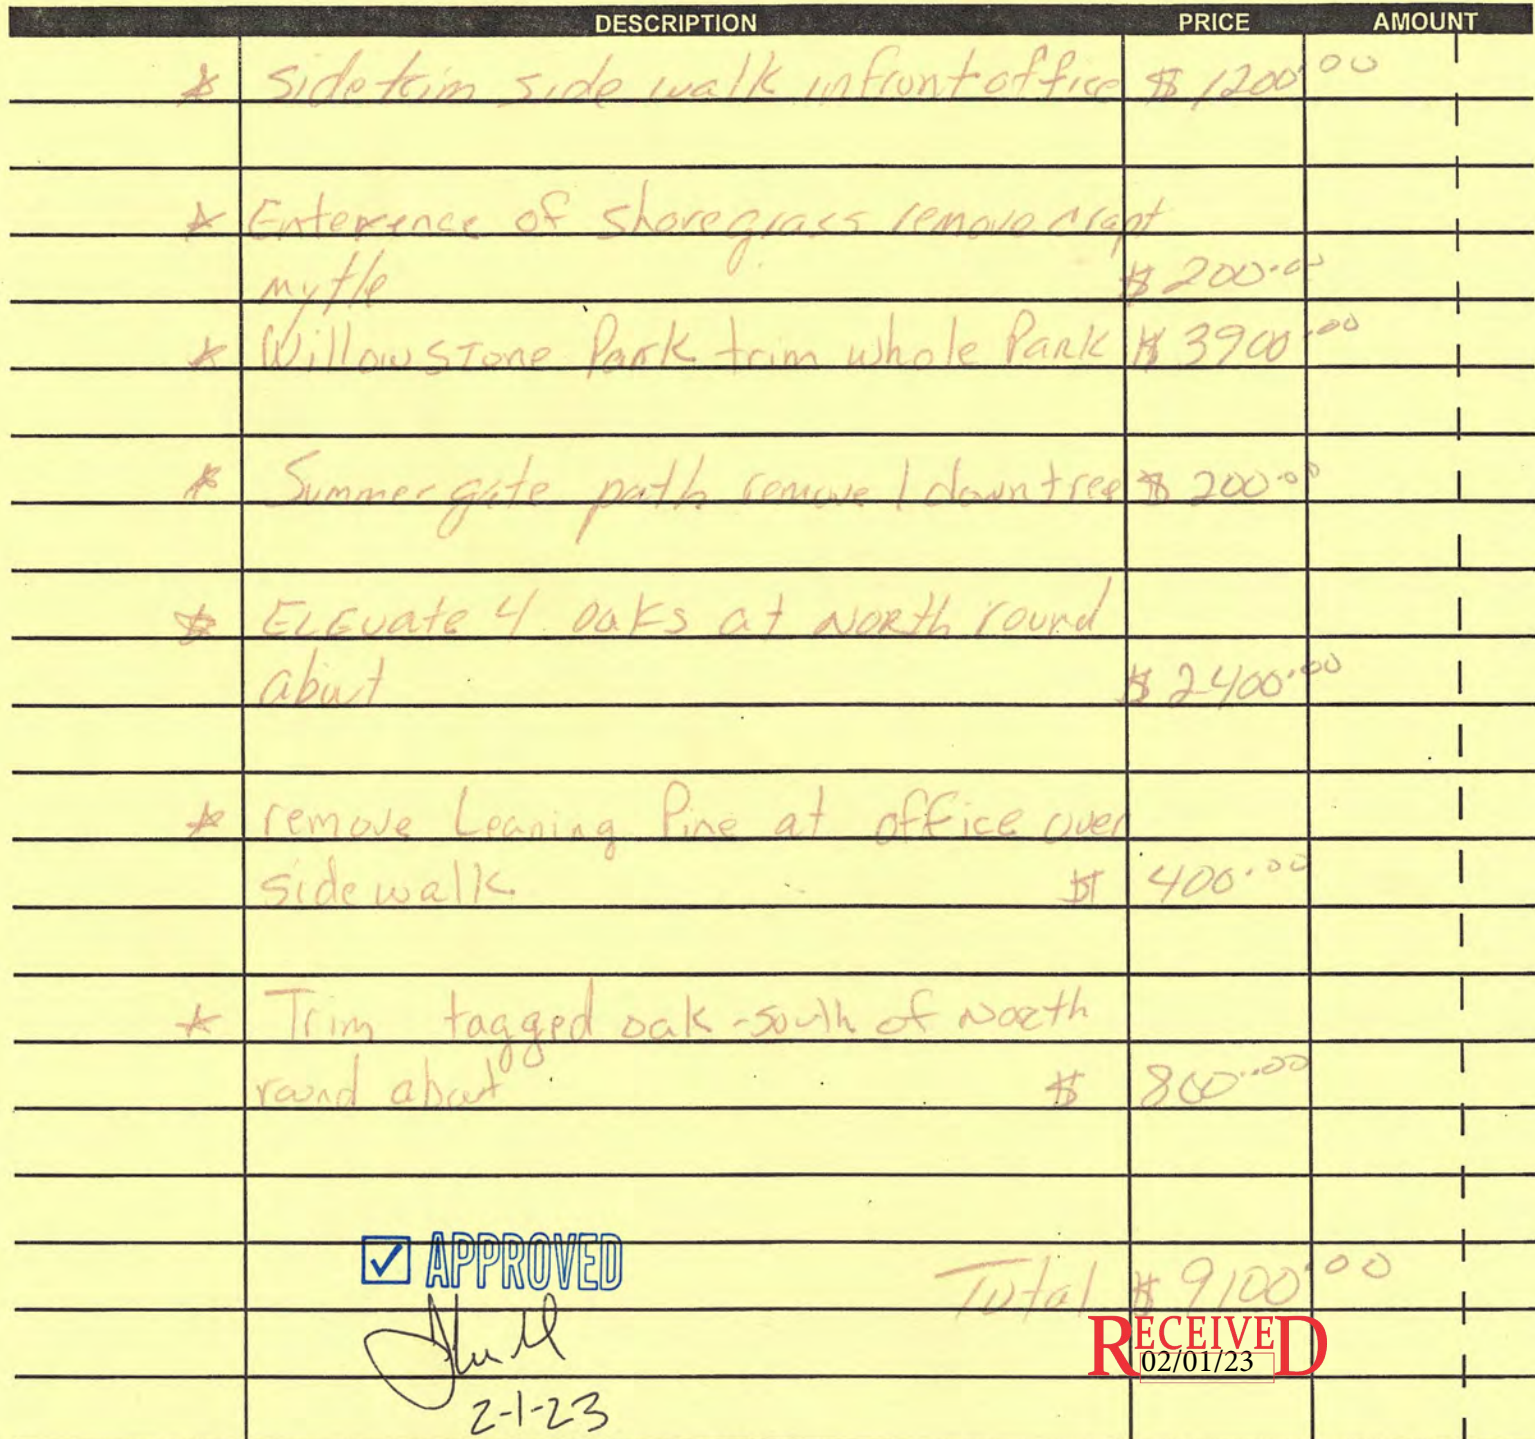 DESCRIPTION PRICE AMOUNT
* Side trim side walk infront office $ 1200.00
* Enterence of shoregrass remove crapt
mytle $ 200.00
* Willowstone Park trim whole Park $ 3900.00
* Summergate path remove 1 down tree $ 200.00
* ELEvate 4 oaks at North round
about $ 2400.00
* remove Leaning Pine at office over
sidewalk $ 400.00
* Trim tagged oak - south of North
round about $ 800.00
APPROVED
Total $ 9100.00
RECEIVED
02/01/23
2-1-23